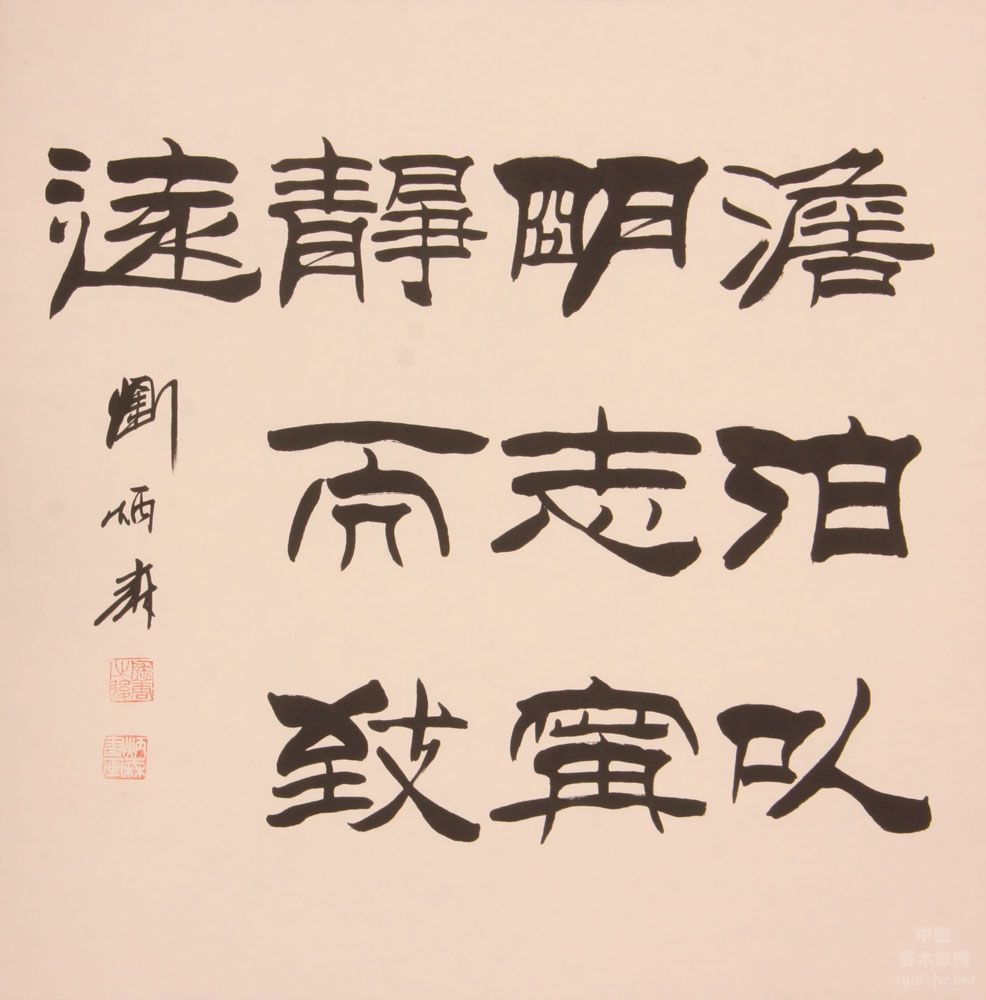 澹泊以
明志寧
靜而致
遠
劉炳森
陶唐之後
中国
美术家网
zgmsjw.net